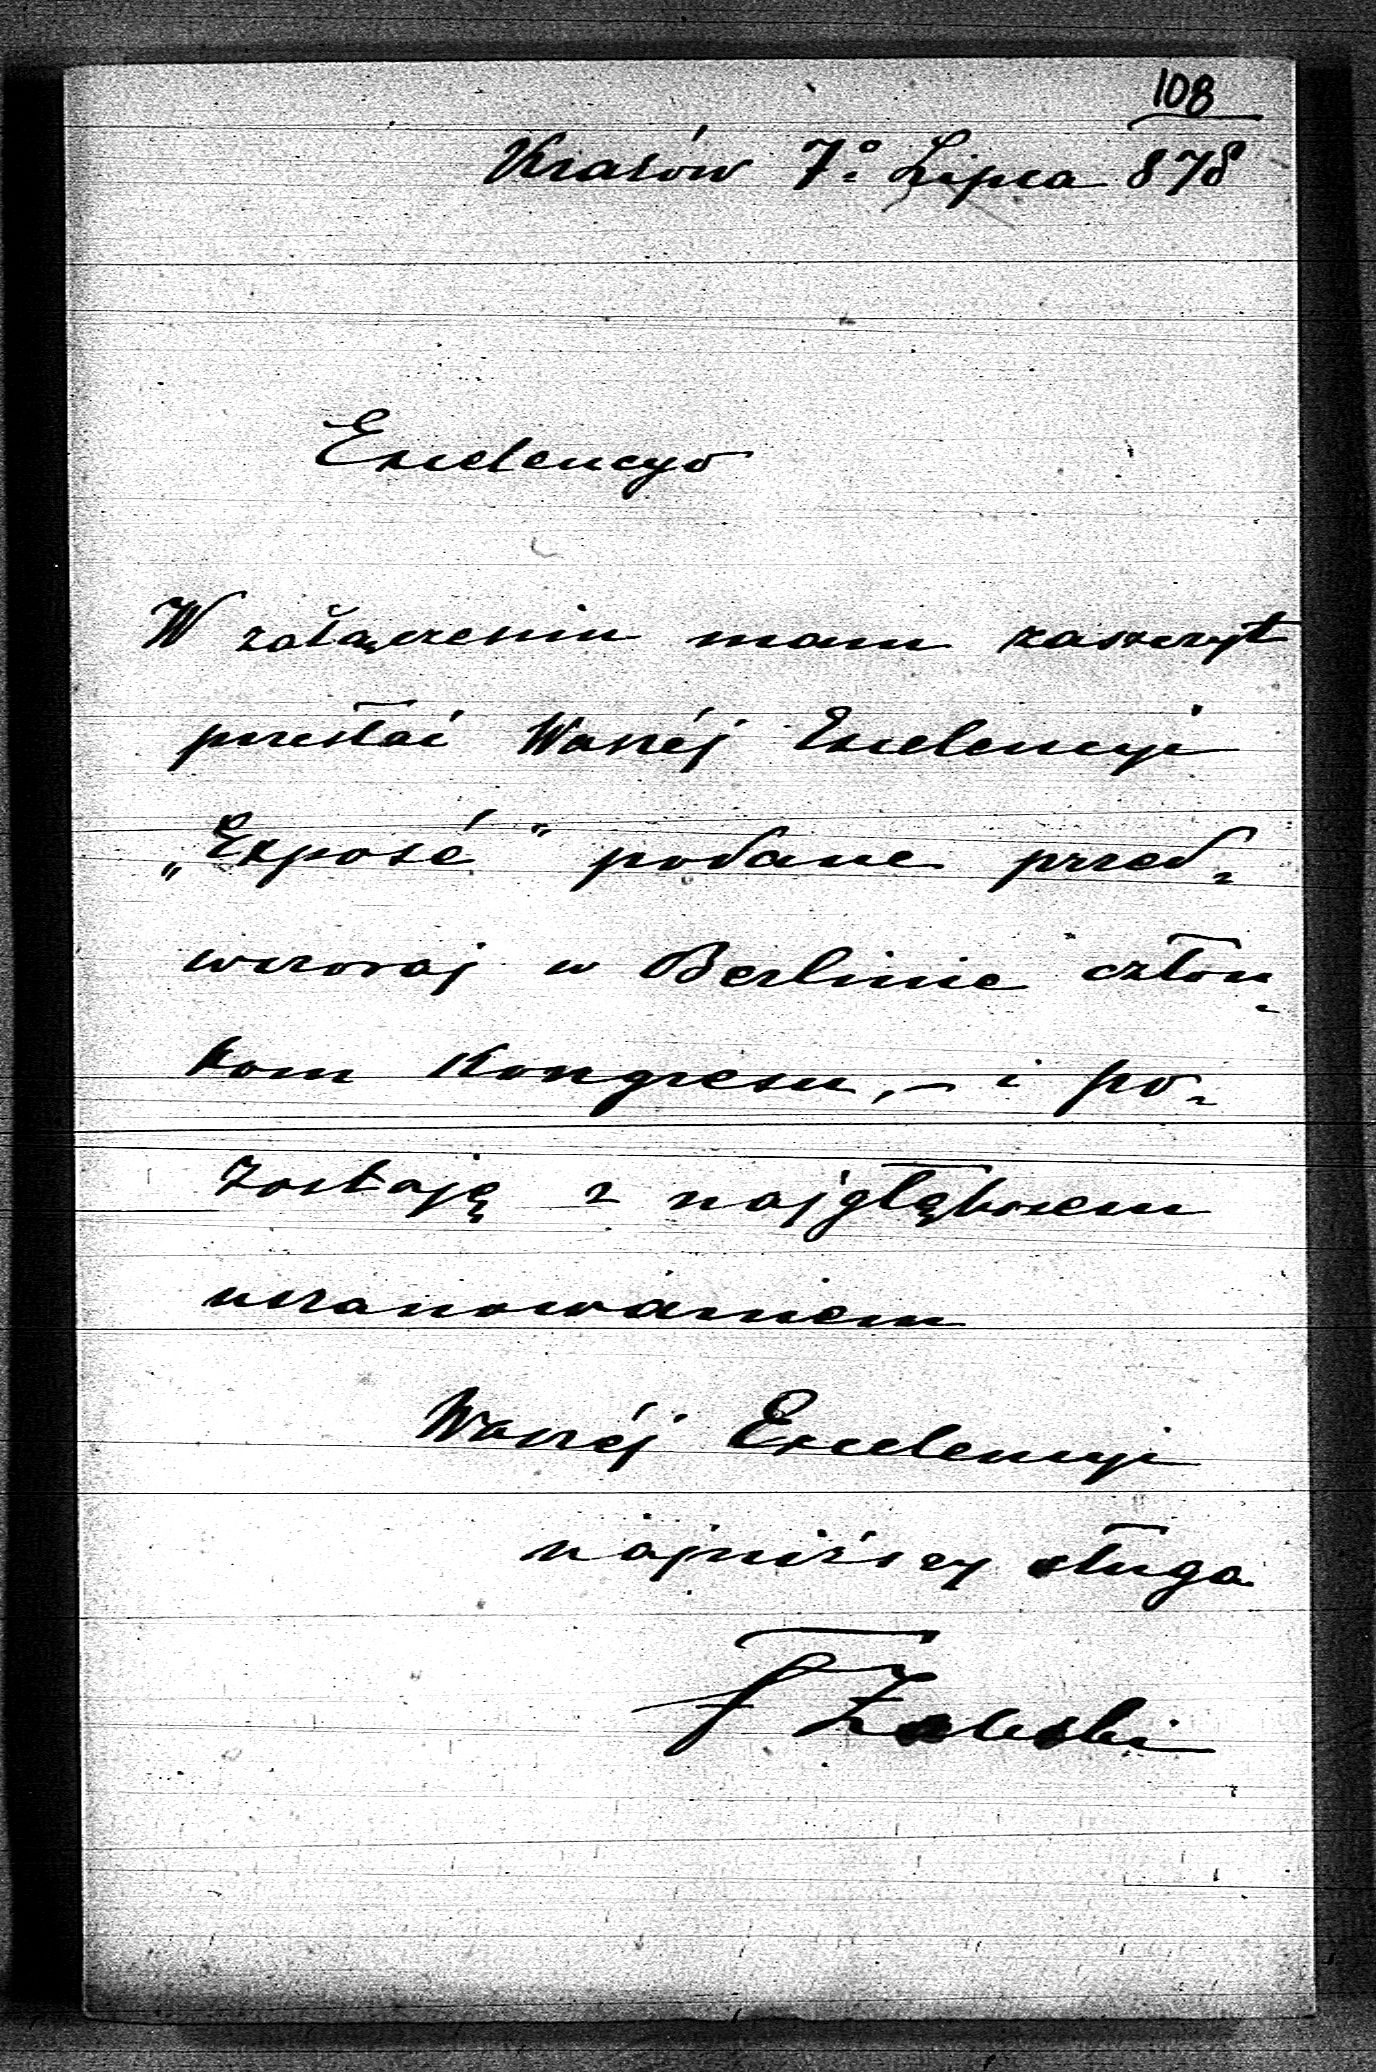 108
Kraków 7º Lipca 878
Excelencyo
W załączeniu mam zaszczyt
przesłać Waszéj Excelencyi
„Exposé" podane przed-
wczoraj w Berlinie człon-
kom Kongresu, – i po-
zostaję z najgłębszem
uszanowaniem
Waszéj Excelencyi
najniższy sługa
F Zaleski